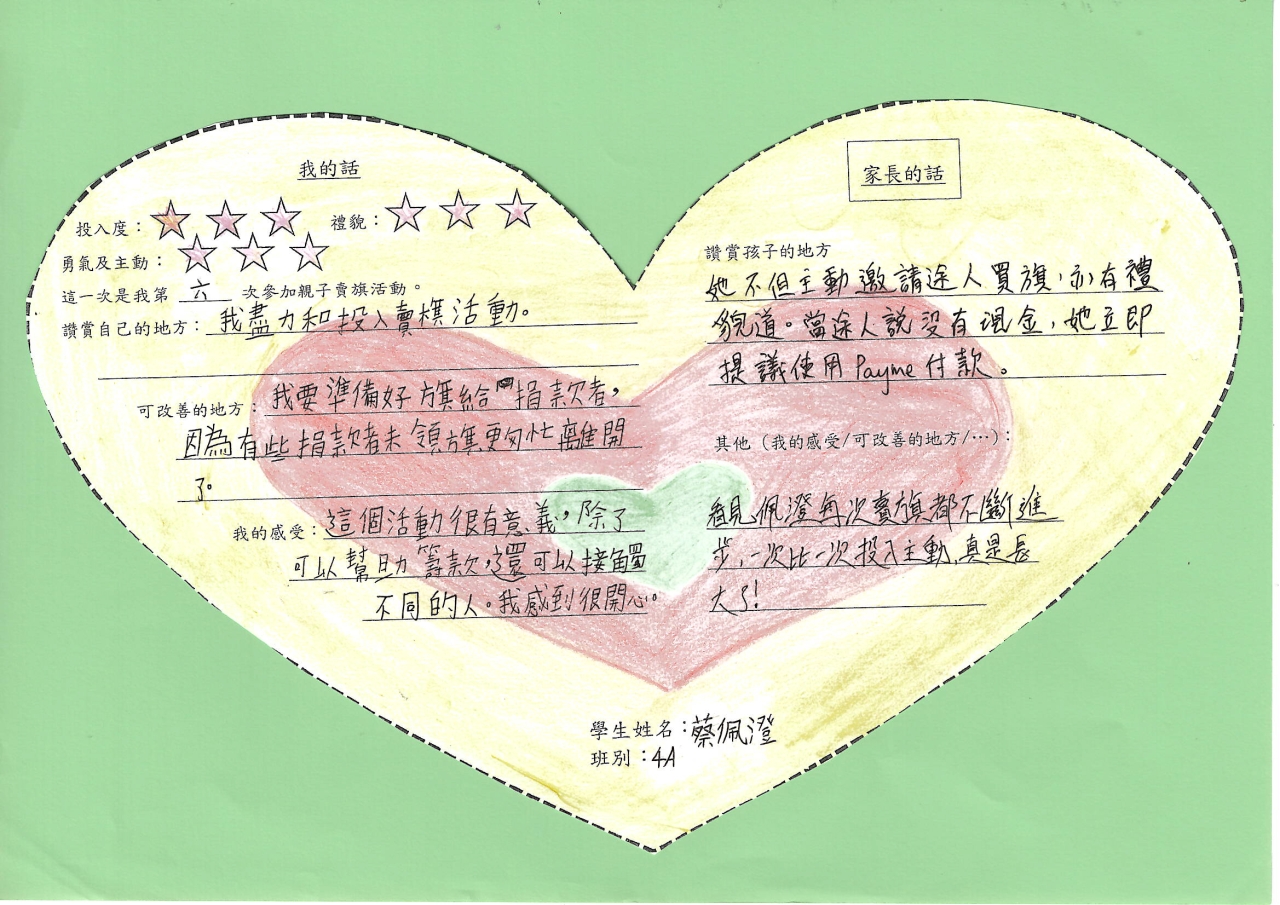 我的話
投入度：☆☆☆ 禮貌：☆☆☆
勇氣及主動：☆☆☆
這一次是我第 六 次參加親子賣旗活動。
讚賞自己的地方：我盡力和投入賣旗活動。
可改善的地方：我要準備好旗給捐款者，
因為有些捐款者未領旗更匆忙離開
了。
我的感受：這個活動很有意義，除了
可以幫助籌款，還可以接觸
不同的人。我感到很開心。
家長的話
讚賞孩子的地方
她不但主動邀請途人買旗，亦有禮
貌道。當途人說沒有現金，她立即
提議使用 Payme 付款。
其他（我的感受/可改善的地方/…）：
看見佩澄每次賣旗都不斷進
步，一次比一次投入主動，真是長
大了！
學生姓名：蔡佩澄
班別：4A